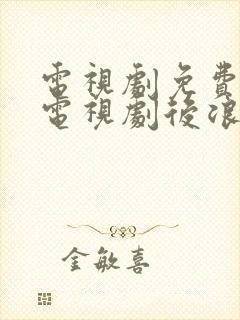 電視劇免費
電視劇後浪
金敏喜